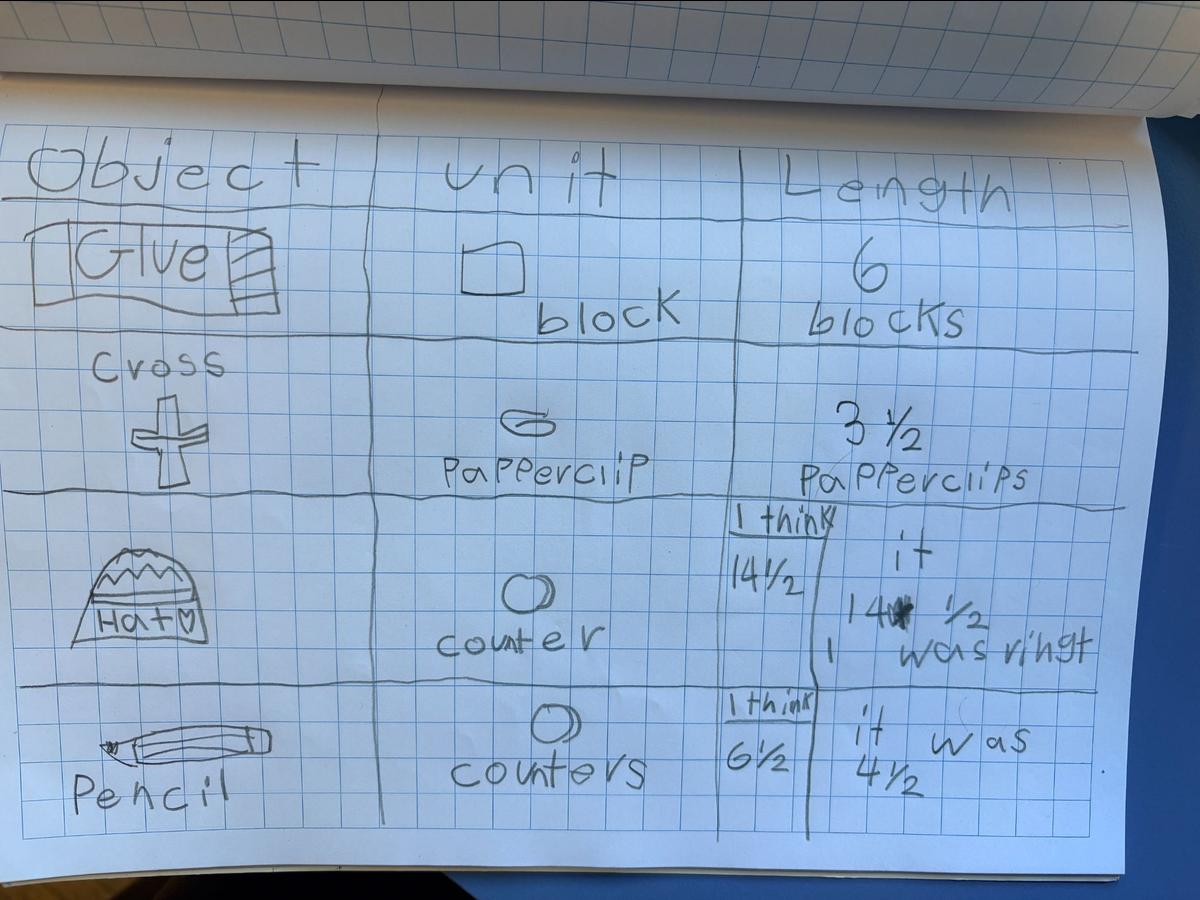 Object unit Length
Glue
block
6
blocks
Cross
papperclip
3 ½
papperclips
Hat
counter
I think
14 ½
it
14 ½
I was ringt
Pencil
counters
I think
6 ½
it was
4 ½